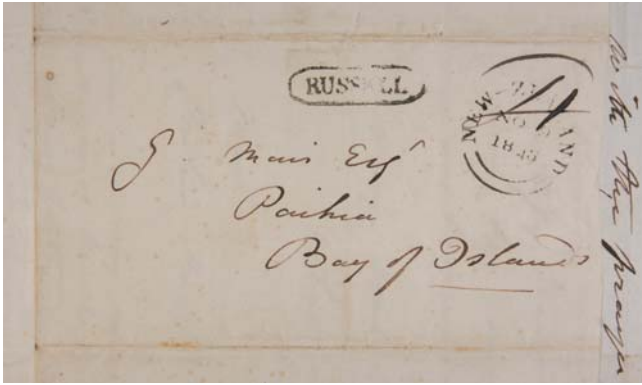 RUSSELL
NEW-ZEALAND
NO
1843
4
G. Mair Esqr
Paihia
Bay of Islands
with the prayer